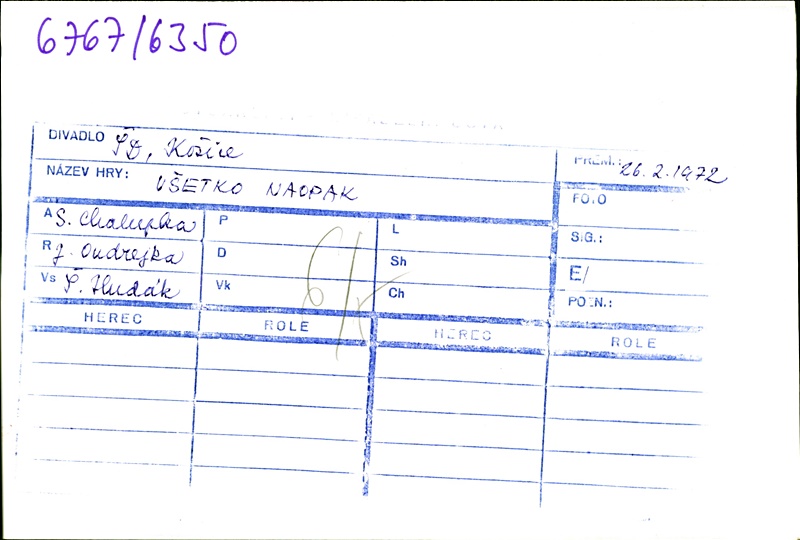 6767/6350
DIVADLO ŠD, Košice
PREM.: 26.2.1972
NÁZEV HRY: VŠETKO NAOPAK
FOTO
A S. Chalupka P L
SIG.:
R J. Ondrejka D Sh
E/
Vs Š. Hudák Vk Ch
POZN.:
HEREC ROLE HEREC ROLE